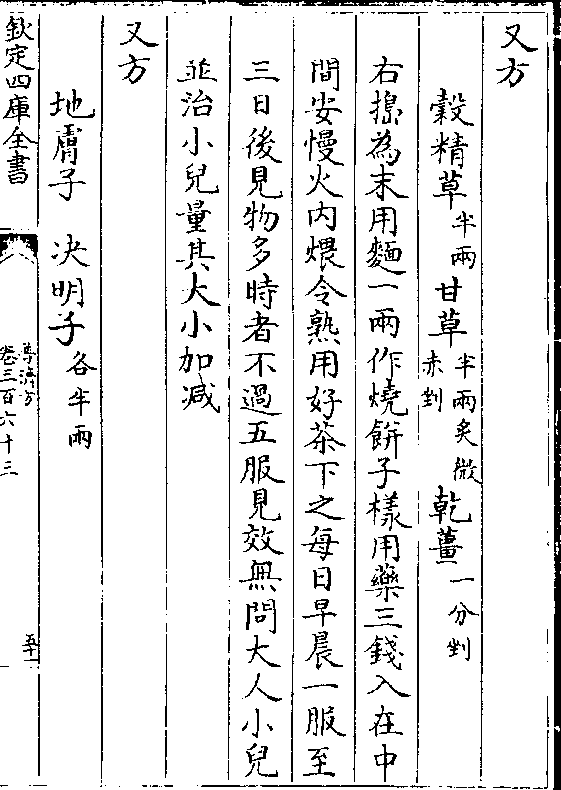 又方
穀精草半兩甘草半兩炙微赤剉乾薑一分剉
右搗為末用麵一兩作燒餅子樣用藥三錢入在中
間安慢火内煨令熟用好茶下之每日早晨一服至
三日後見物多時者不過五服見效無問大人小兒
並治小兒量其大小加减
又方
地膚子 决明子各半兩
欽定四庫全書
普濟方
卷三百六十三
五十一